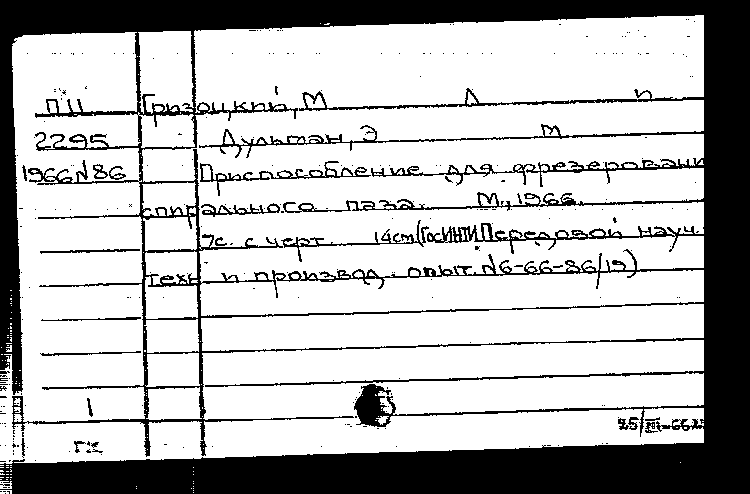 П11 Гризоцкий, М Л и
2295 Дульман, Э м
1966 N86 Приспособление для фрезеровани
спирального паза. М., 1966.
7с. с черт. 14см (ГОСИНТИ Передовой науч.
техн и производ. опыт. N6-66-86/19)
1
ГК
25/III-66